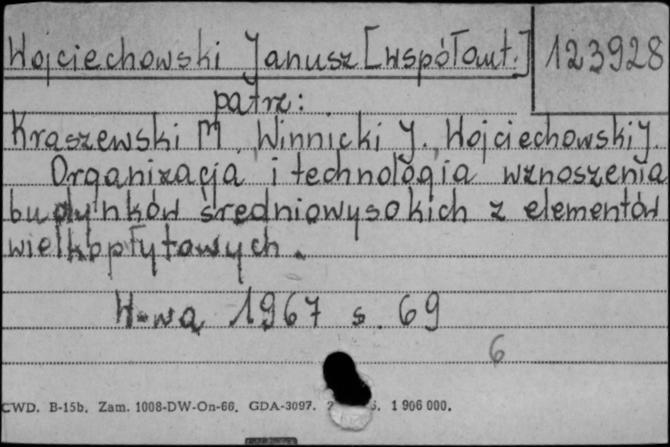 Wojciechowski Janusz [współaut.] 123928
patrz:
Kraszewski M, Winnicki J., Wojciechowski J.
Organizacja i technologia wznoszenia
budynków średniowysokich z elementów
wielkopłytowych.
W-wa 1967 s. 69
6
CWD. B-15b. Zam. 1008-DW-On-66. GDA-3097. 1 906 000.